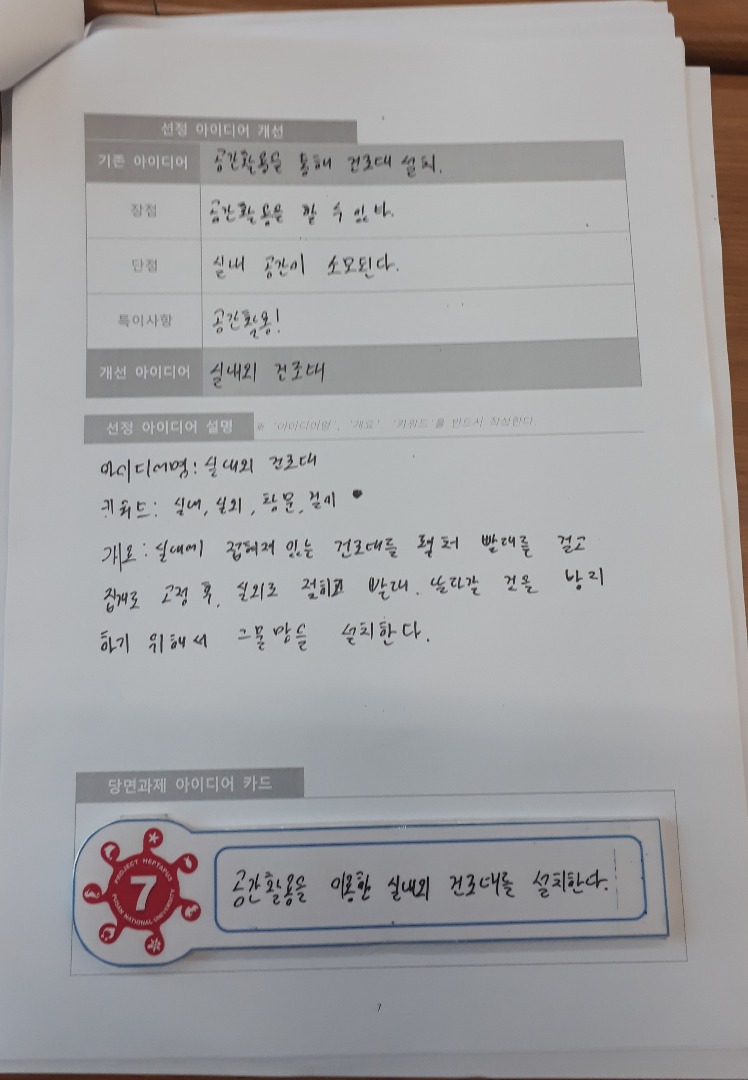 선정 아이디어 개선
기존 아이디어 공간활용을 통해 건조대 설치.
장점 공간활용을 할 수 있다.
단점 실내 공간이 소모된다.
특이사항 공간활용!
개선 아이디어 실내외 건조대
선정 아이디어 설명 ※ '아이디어명', '개요', '키워드'를 반드시 작성한다.
아이디어명: 실내외 건조대
키워드: 실내, 실외, 창문, 접이
개요: 실내에 접혀져 있는 건조대를 펼쳐 빨래를 걸고
집게로 고정 후, 실외로 빨래. 날라갈 것을 방지
하기 위해서 그물망을 설치한다.
당면과제 아이디어 카드
PROJECT HEPTAPUS
7
PUSAN NATIONAL UNIVERSITY
공간활용을 이용한 실내외 건조대를 설치한다.
7